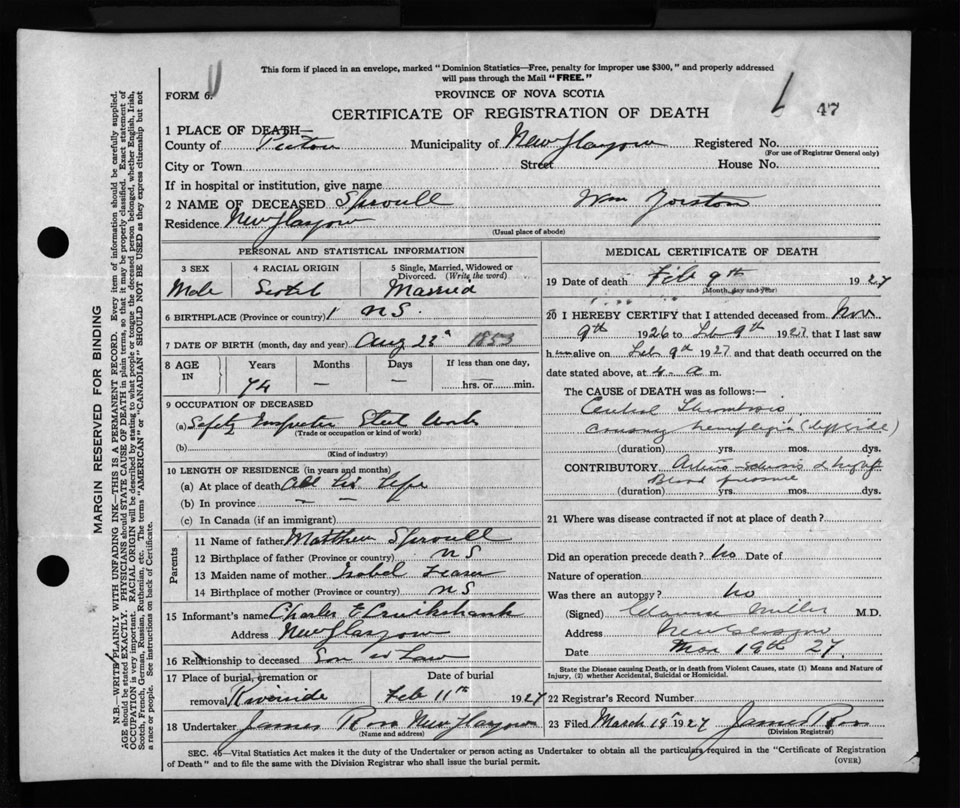 This form if placed in an envelope, marked "Dominion Statistics—Free, penalty for improper use $300," and properly addressed
will pass through the Mail "FREE."
FORM 6.
PROVINCE OF NOVA SCOTIA
CERTIFICATE OF REGISTRATION OF DEATH
47
1 PLACE OF DEATH—
County of Pictou Municipality of New Glasgow Registered No.
(For use of Registrar General only)
City or Town Street House No.
If in hospital or institution, give name
2 NAME OF DECEASED Sproull Wm Yorston
Residence New Glasgow
(Usual place of abode)
PERSONAL AND STATISTICAL INFORMATION
3 SEX 4 RACIAL ORIGIN 5 Single, Married, Widowed or
Divorced. (Write the word)
Male Scotch Married
6 BIRTHPLACE (Province or country) N S.
7 DATE OF BIRTH (month, day and year) Aug 23 1853
8 AGE IN Years Months Days If less than one day,
74 — — hrs. or min.
9 OCCUPATION OF DECEASED
(a) Safety Inspector Steel Works
(Trade or occupation or kind of work)
(b)
(Kind of industry)
10 LENGTH OF RESIDENCE (in years and months)
(a) At place of death All his Life
(b) In province — —
(c) In Canada (if an immigrant)
Parents
11 Name of father Matthew Sproull
12 Birthplace of father (Province or country) N S
13 Maiden name of mother Isobel Fraser
14 Birthplace of mother (Province or country) N S
15 Informant's name Charles E Cruikshank
Address New Glasgow
16 Relationship to deceased Son in Law
17 Place of burial, cremation or Date of burial
removal Riverside Feb 11th 1927
18 Undertaker James Ross New Glasgow
(Name and address)
MEDICAL CERTIFICATE OF DEATH
19 Date of death Feb 9th 1927
(Month, day and year)
20 I HEREBY CERTIFY that I attended deceased from Nov
9th 1926 to Feb 9th 1927 that I last saw
him alive on Feb 9th 1927 and that death occurred on the
date stated above, at 4 a m.
The CAUSE of DEATH was as follows:—
Cerebral Thrombosis
causing hemiplegia (left side)
(duration) yrs. mos. dys.
CONTRIBUTORY Arterio-sclerosis & high
Blood pressure
(duration) yrs. mos. dys.
21 Where was disease contracted if not at place of death?
Did an operation precede death? No Date of
Nature of operation
Was there an autopsy? No
(Signed) Miller M.D.
Address New Glasgow
Date Mar 19th 27.
State the Disease causing Death, or in death from Violent Causes, state (1) Means and Nature of
Injury, (2) whether Accidental, Suicidal or Homicidal.
22 Registrar's Record Number
23 Filed March 19th 1927 James Ross
(Division Registrar)
SEC. 46—Vital Statistics Act makes it the duty of the Undertaker or person acting as Undertaker to obtain all the particulars required in the "Certificate of Registration
of Death" and to file the same with the Division Registrar who shall issue the burial permit.
(OVER)
MARGIN RESERVED FOR BINDING
N.B.—WRITE PLAINLY WITH UNFADING INK—THIS IS A PERMANENT RECORD. Every item of information should be carefully supplied.
AGE should be stated EXACTLY. PHYSICIANS should STATE CAUSE OF DEATH in plain terms, so that it may be properly classified. Exact statement of
OCCUPATION is very important. RACIAL ORIGIN will be described by stating to what people or tongue the deceased person belonged, whether English, Irish,
Scotch, French, German, Russian, Ruthenian, etc. The terms "AMERICAN" or "CANADIAN" SHOULD NOT BE USED as they express citizenship but not
a race or people. See instructions on back of Certificate.